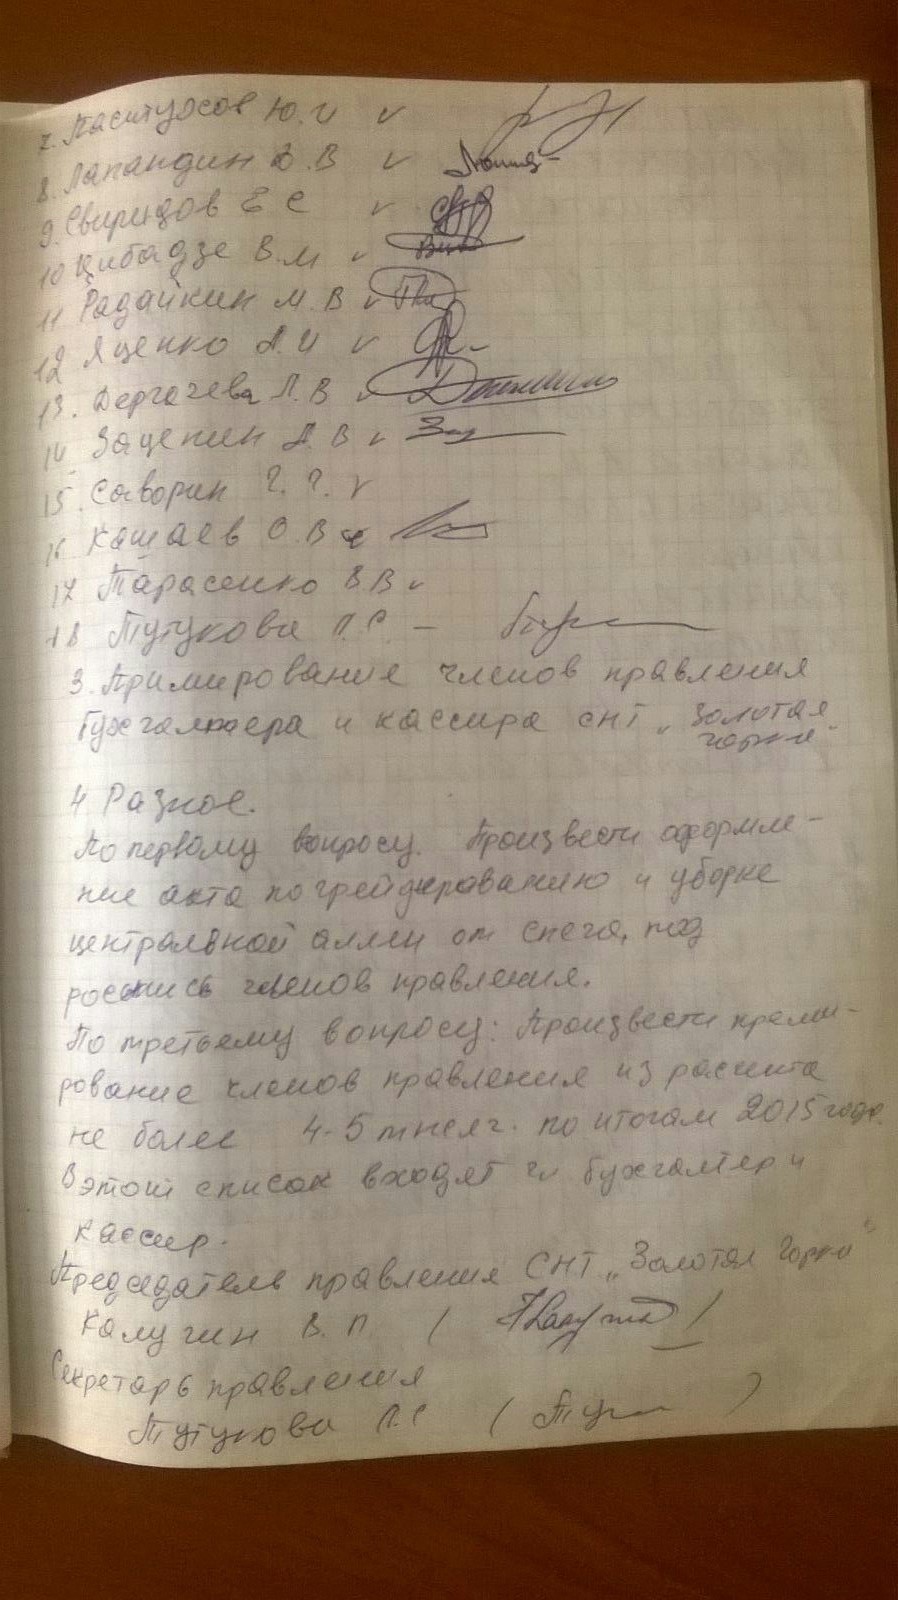 7. Пастухов Ю. И
8. Лапандин В. В
9. Свиридов Е С
10 Цибадзе В. М
11 Радайкин М. В
12 Яценко А. И
13. Дергачева Л. В
14 Зацепин А. В
15. Саворин Г. Г.
16 Кашаев О. В
17 Тарасенко В. В
18 Тутукова Л. С. –
3. Примирование членов правления
бухгалтера и кассира СНТ „Золотая
горка"
4 Разное.
По первому вопросу. Произвести оформле-
ние акта по грейдированию и уборке
центральной аллеи от снега, под
роспись членов правления.
По третьему вопросу: Произвести преми-
рование членов правления из расчета
не более 4-5 т по итогам 2015 года.
В этот список входят бухгалтер и
кассир.
Председатель правления СНТ „Золотая Горка"
Калугин В. П. ( )
Секретарь правления
Тутукова Л. С ( )